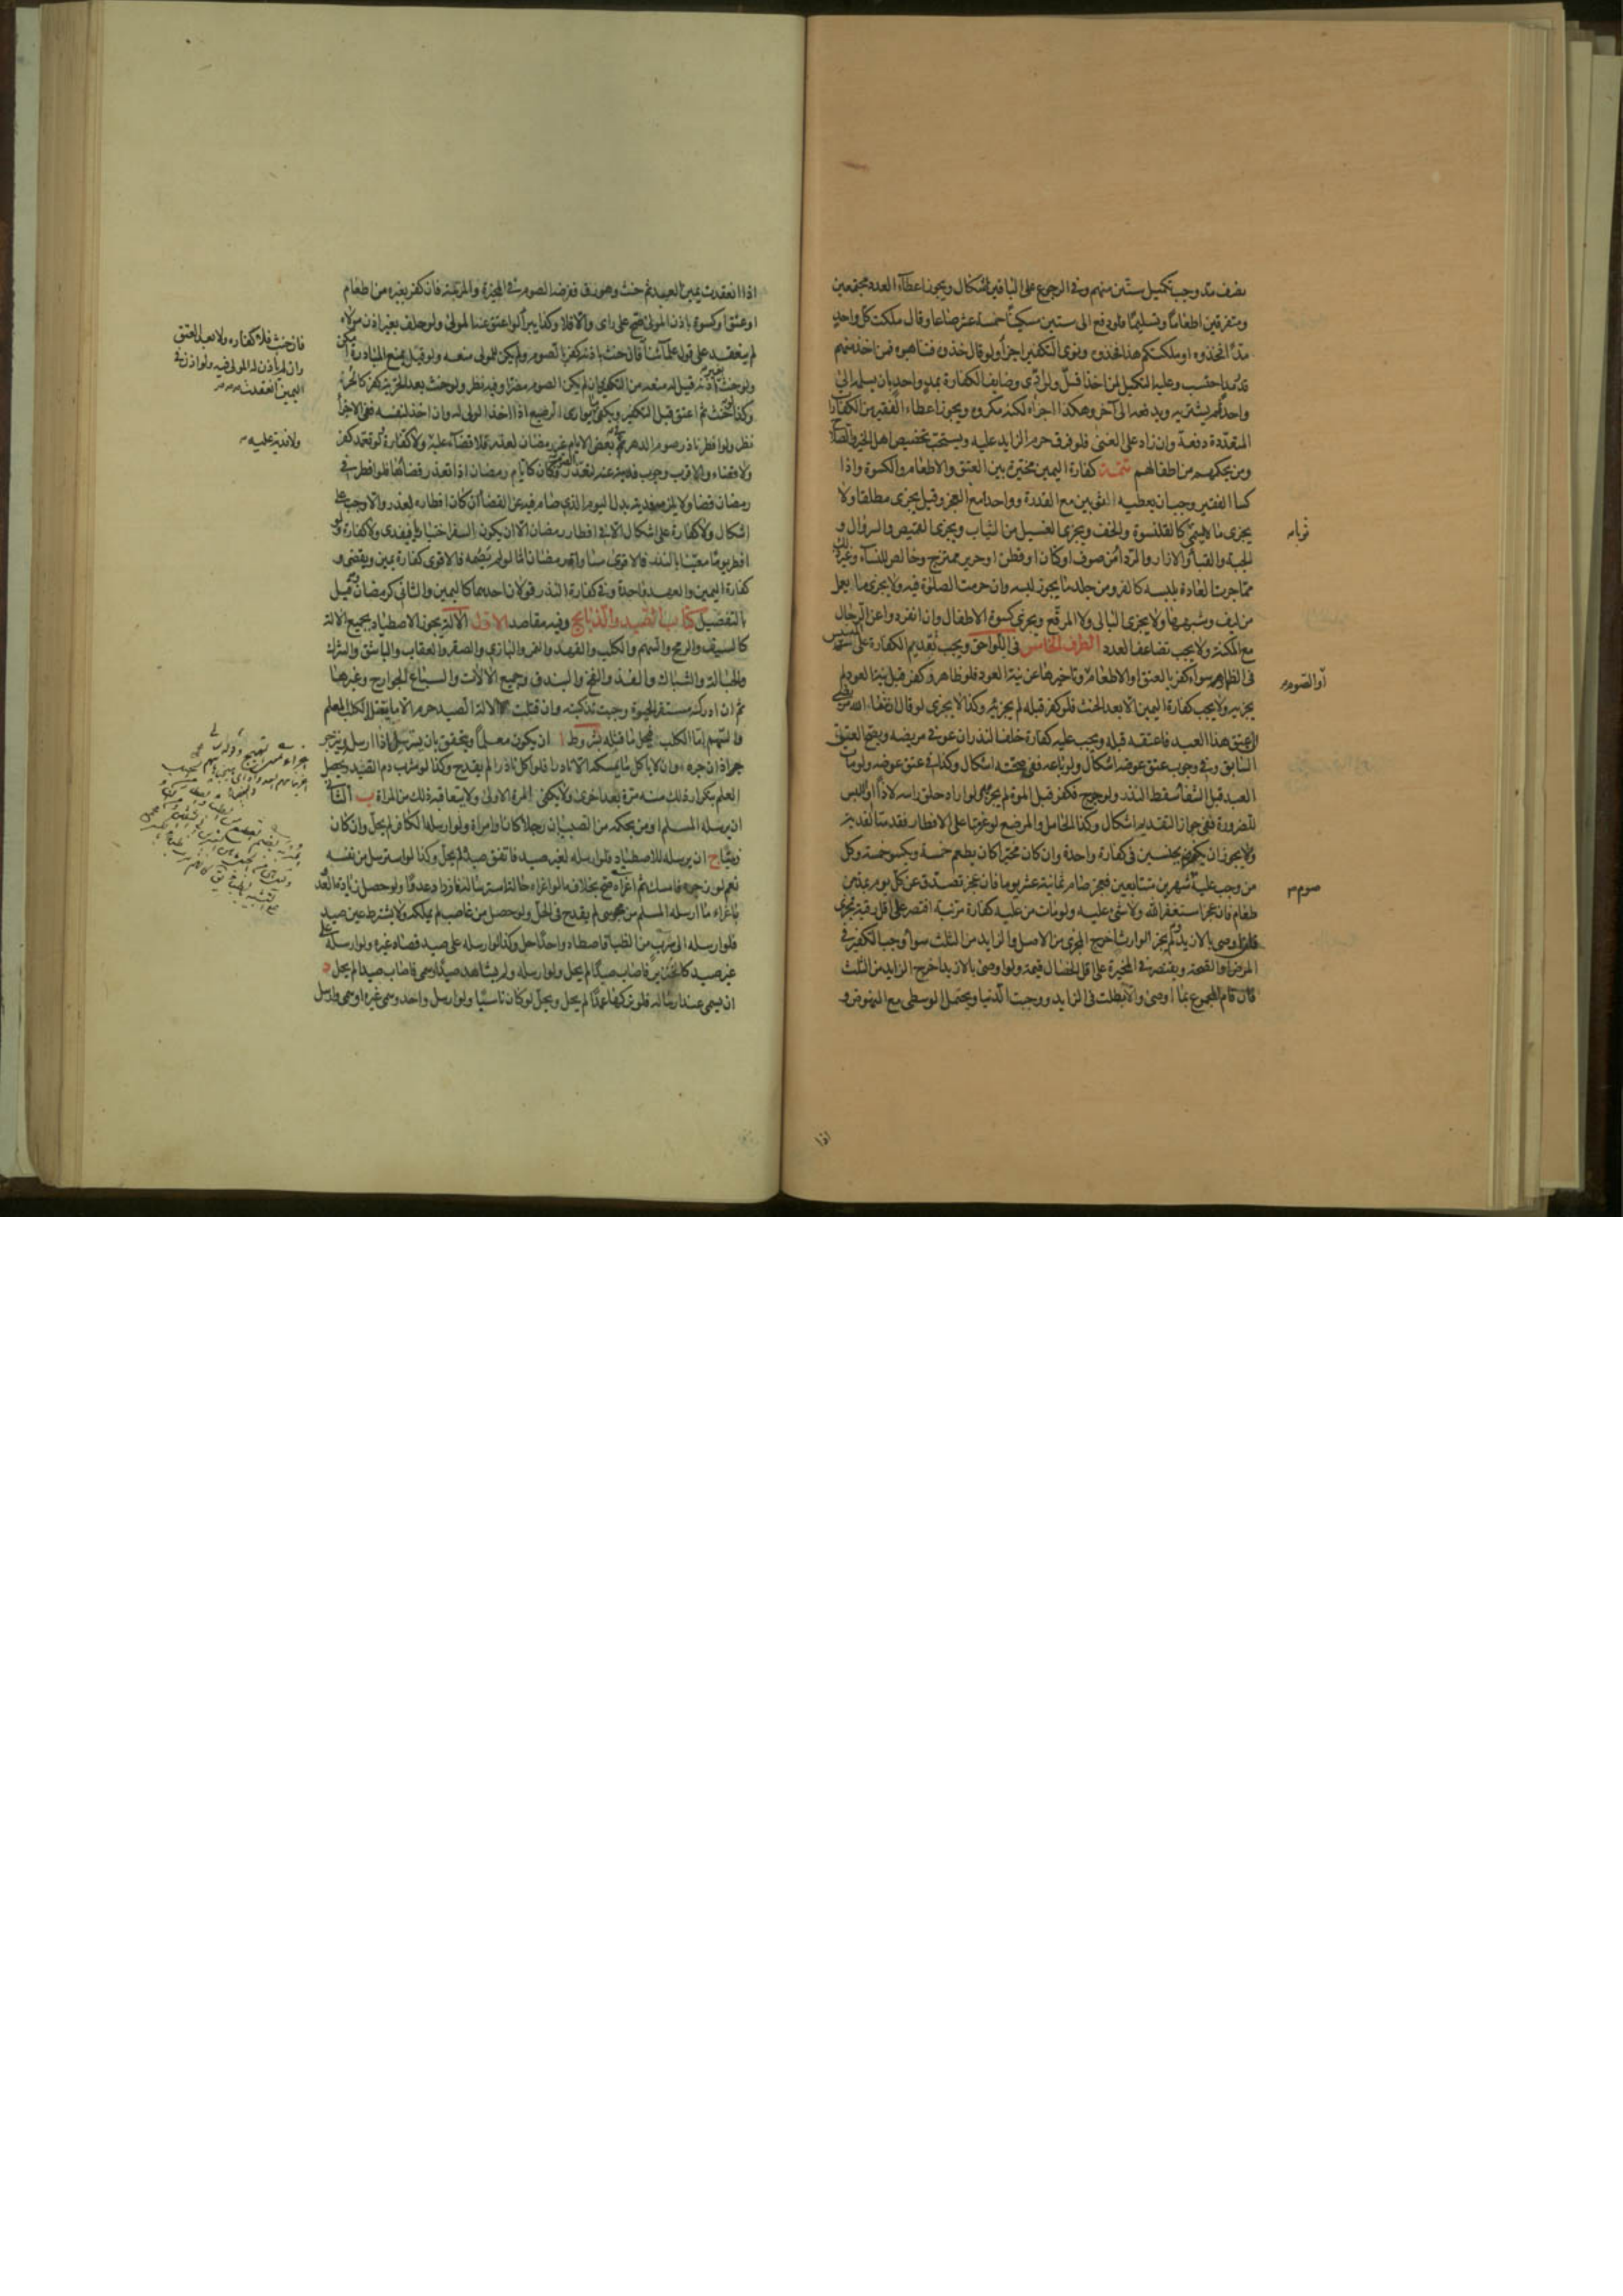 نصف مد وجب تكميل ستين منهم وفي الرجوع على الباقين اشكال ويجوز اعطاء العدد مجتمعين
ومتفرقين اطعاما وتسليما فلو دفع الى ستين مسكينا خمسة عشر صاعا وقال ملكت كل واحد
مدا فخذوه او ملكتكم هذا فخذوه ونوى التكفير اجزأ ولو قال خذوه فتناهبوه فمن اخذ منهم
قدر مد احتسب وعليه التكميل لمن اخذ اقل ولو ادى وظايف الكفارة بمد واحد بان يسلمه الى
واحد ثم يشتريه ويدفعه الى آخر وهكذا اجزاه لكنه مكروه ويجوز اعطاء الفقير من الكفارات
المتعددة دفعة وان زاد على الغنى فلو فرق حرم الزايد عليه ويستحب تخصيص اهل الخير والصلاح
ومن يحكمهم من اطفالهم تتمة كفارة اليمين مخيرة بين العتق والاطعام والكسوة واذا
كسا الفقير وجب ان يعطيه الثوبين مع القدرة وواحدا مع العجز وقيل يجزي مطلقا ولا
ثوبا
يجزي ما لا يسمى كالقلنسوة والخف ويجزي الغسيل من الثياب ويجزي القميص والسروال و
الجبة والقباء والازار والرداء من صوف او كتان او قطن او حرير ممتزج وخالص للنساء وغير ذلك
مما جرت العادة بلبسه كالفرو من جلد ما يجوز لبسه وان حرمت الصلوة فيه ولا يجزي ما يعمل
من ليف وشبهها ولا يجزي البالي ولا المرقع ويجزي كسوة الاطفال وان انفردوا عن الرجال
مع المكنة ولا يجب تضاعف العدد الطرف الخامس في اللواحق ويجب تقديم الكفارة على المسيس
او الصوم
في الظهار سواء كفر بالعتق او الاطعام وتاخيرها عن نية العود فلو ظاهر وكفر قبل نية العود لم
يجزيه ولا يجب كفارة اليمين الا بعد الحنث فلو كفر قبله لم يجزئه وكذا لا يجزي لو قال ان شفا الله مريضي
اعتق هذا العبد فاعتقه قبله ويجب عليه كفارة خلف النذر ان عوفي مريضه ويقع العتق
السابق وفي وجوب عتق عوضه اشكال ولو باعه ففي صحته اشكال وكذا في عتق عوضه ولو مات
العبد قبل الشفا سقط النذر ولو جرح فكفر قبل الموت لم يجزه ولو اراد حلق راسه لاذى او اللبس
للضرورة ففي جواز التقديم اشكال وكذا الحامل والمرضع لو عزمتا على الافطار فقدمتا الفدية
ولا يجوز ان يكفر بجنسين في كفارة واحدة وان كان مخيرا كان يطعم خمسة ويكسو خمسة وكل
صوم
من وجب عليه شهرين متتابعين فعجز صام ثمانية عشر يوما فان عجز تصدق عن كل يوم بمد من
طعام فان عجز استغفر الله ولا شيء عليه ولو مات من عليه كفارة مرتبة اقتصر على اقل رقبة تجزي
فلو اوصى بالازيد ولم يجز الوارث اخرج المجزي من الاصل والزايد من الثلث سواء وجب التكفير في
المرض او الصحة ويقتصر في المخيرة على اقل الخصال قيمة ولو اوصى بالازيد اخرج الزايد من الثلث
فان قام المجموع بما اوصى والا بطلت في الزايد ووجبت الدنيا ويحتمل الوسطى مع النهوض و
اذا
اذا انعقدت يمين العبد ثم حنث وهو رق ففرضه الصوم في المخيرة والمرتبة فان كفر بغيره من اطعام
او عتق او كسوة باذن المولى صح على راى والا فلا وكذا يبرأ لو اعتق عنه المولى ولو حلف بغير اذن مولاه
فان حنث فلا كفارة ولا بعد العتق
وان لم يأذن له المولى فيه ولو اذن في
اليمين انعقدت
لم ينعقد على قول علمائنا فان حنث باذنه كفر بالصوم ولم يكن للمولى منعه ولو قيل بمنع المبادرة امكن
ولو حنث بغير اذنه قيل له منعه من التكفير وان لم يكن الصوم مضرا وفيه نظر ولو حنث بعد الحرية كفر كالحر
وكذا لو حنث ثم اعتق قبل التكفير ويكفي ما يواري الرضيع اذا اخذ الولي له وان اخذ لنفسه ففي الاجزأ
ولا فدية عليه
نظر ولو افطر ناذر صوم الدهر في بعض الايام غير رمضان لعذر فلا قضاء عليه ولا كفارة ولو تعمد كفر
ولا قضاء والاقرب وجوب فدية عند تعذر الصوم وكان كايام رمضان اذا تعذر قضاؤها فلو افطر في
رمضان قضا ولا يلزمه فدية بدل اليوم الذي صام فيه عن القضا ان كان افطاره لعذر والا وجب على
اشكال ولا كفارة على اشكال الا في افطار رمضان الا ان يكون السفر اختياريا فيفدي ولا كفارة ولو
افطر يوما معينا بالنذر فالاقوى مساواته رمضان اما لو لم يصمه فالاقوى كفارة يمين ويقضي و
كفارة اليمين والعهد واحدة وفي كفارة النذر قولان احدهما كاليمين والثاني كرمضان وقيل
بالتفصيل كتاب الصيد والذبايح وفيه مقاصد الاول الآلة يجوز الاصطياد بجميع الالة
كالسيف والرمح والسهم والكلب والفهد والنمر والبازي والصقر والعقاب والباشق والشرك
والحبالة والشباك والفخ والبندق وجميع الالات والسباع الجوارح وغيرها
ثم ان ادركه مستقر الحيوة وجبت تذكيته وان قتلت الالة الصيد حرم الا ما يقتله الكلب المعلم
والسهم اما الكلب فيحل ما قتله بشروط ا ان يكون معلما ويتحقق بان يسترسل اذا ارسل وينزجر
اذا زجره وان لا ياكل ما يمسكه الا نادرا فلو اكل نادرا لم يقدح وكذا لو شرب دم الصيد ويحصل
العلم بتكرار ذلك منه مرة بعد اخرى ولا يكفي المرة الاولى ولا يتعاقبه ذلك من المراة ب الثاني
ان يرسله المسلم او من بحكمه من الصبيان رجلا كان او امراة ولو ارسله الكافر لم يحل وان كان
ذميا ج ان يرسله للاصطياد فلو ارسله لغير صيد فاتفق صيد لم يحل وكذا لو استرسل من نفسه
نعم لو زجره فامسك ثم اغراه صح بخلاف ما لو اغراه حالة استرساله فازداد عدوا ولو حصل زيادة العدو
باغراء ما ارسله المسلم من مجوسي لم يقدح في الحل ولو حصل من غاصب لم يملكه ولا يشترط عين صيد
فلو ارسله الى سرب من الظبا فاصطاد واحدا حل وكذا لو ارسله على صيد فصاد غيره ولو ارسله على
غير صيد كالخنزير فاصاب صيدا لم يحل ولو ارسله ولم يشاهد صيدا وسمى فاصاب صيدا لم يحل د
ان يسمي عند ارساله فلو تركها عمدا لم يحل ويحل لو كان ناسيا ولو ارسل واحد وسمى غيره او سمى وارسل